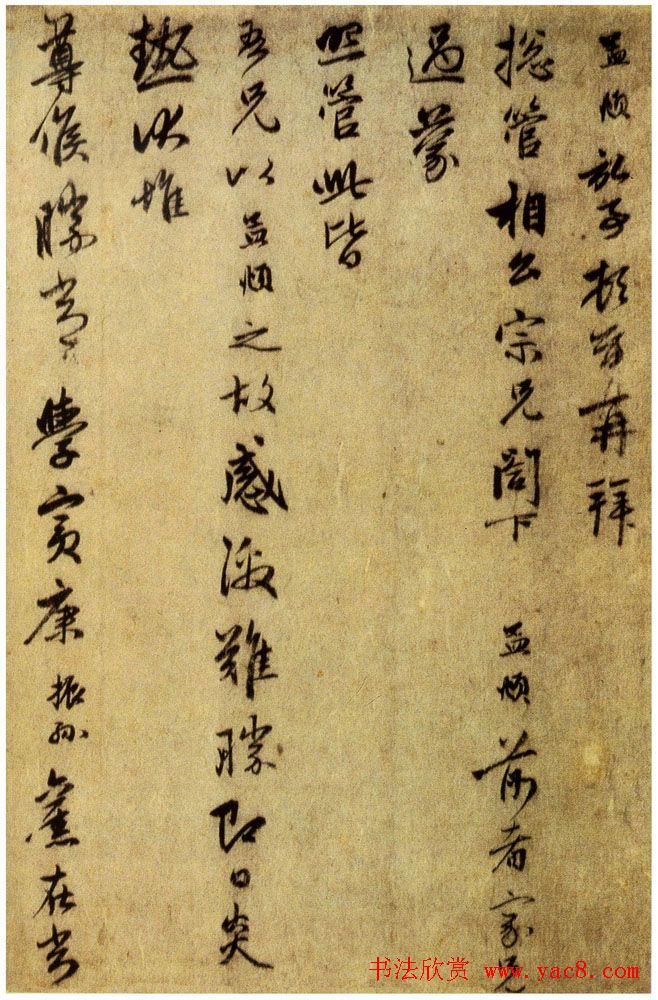 孟頫記事頓首再拜
捴管相公宗兄閤下 孟頫前者家兄
過蒙
照管此皆
吾兄以孟頫之故感激難勝即日炎
熱伏惟
尊候勝常 學賓康振孙舊在常
书法欣赏 www.yac8.com